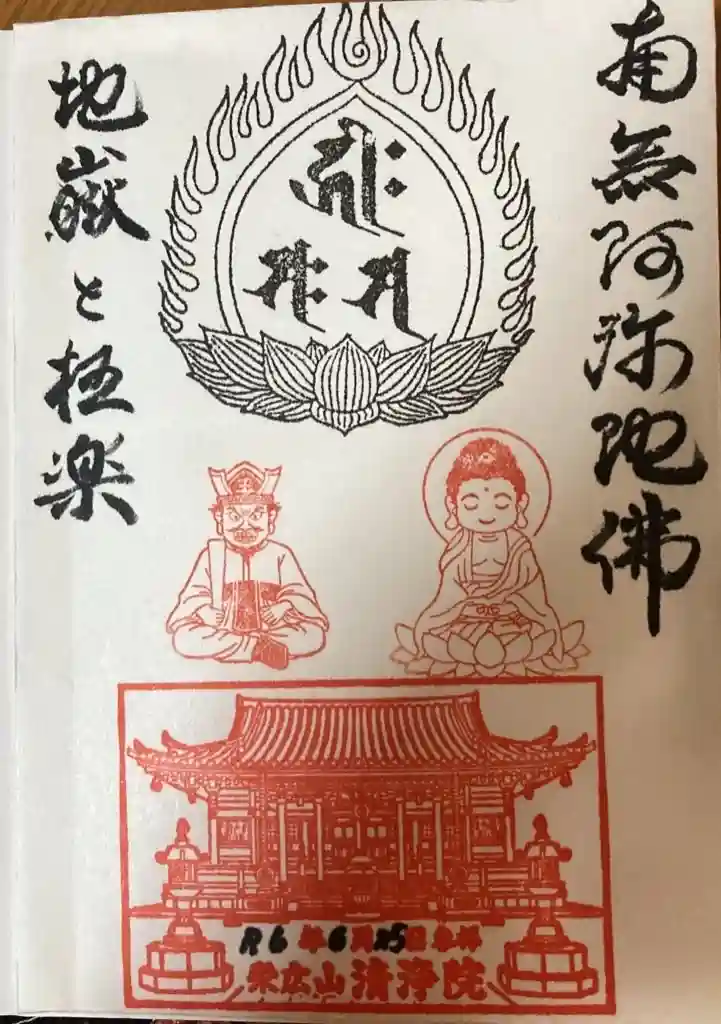 南無阿弥陀佛
地嶽と極楽
R6年6月25日参拝
栄広山清浄院